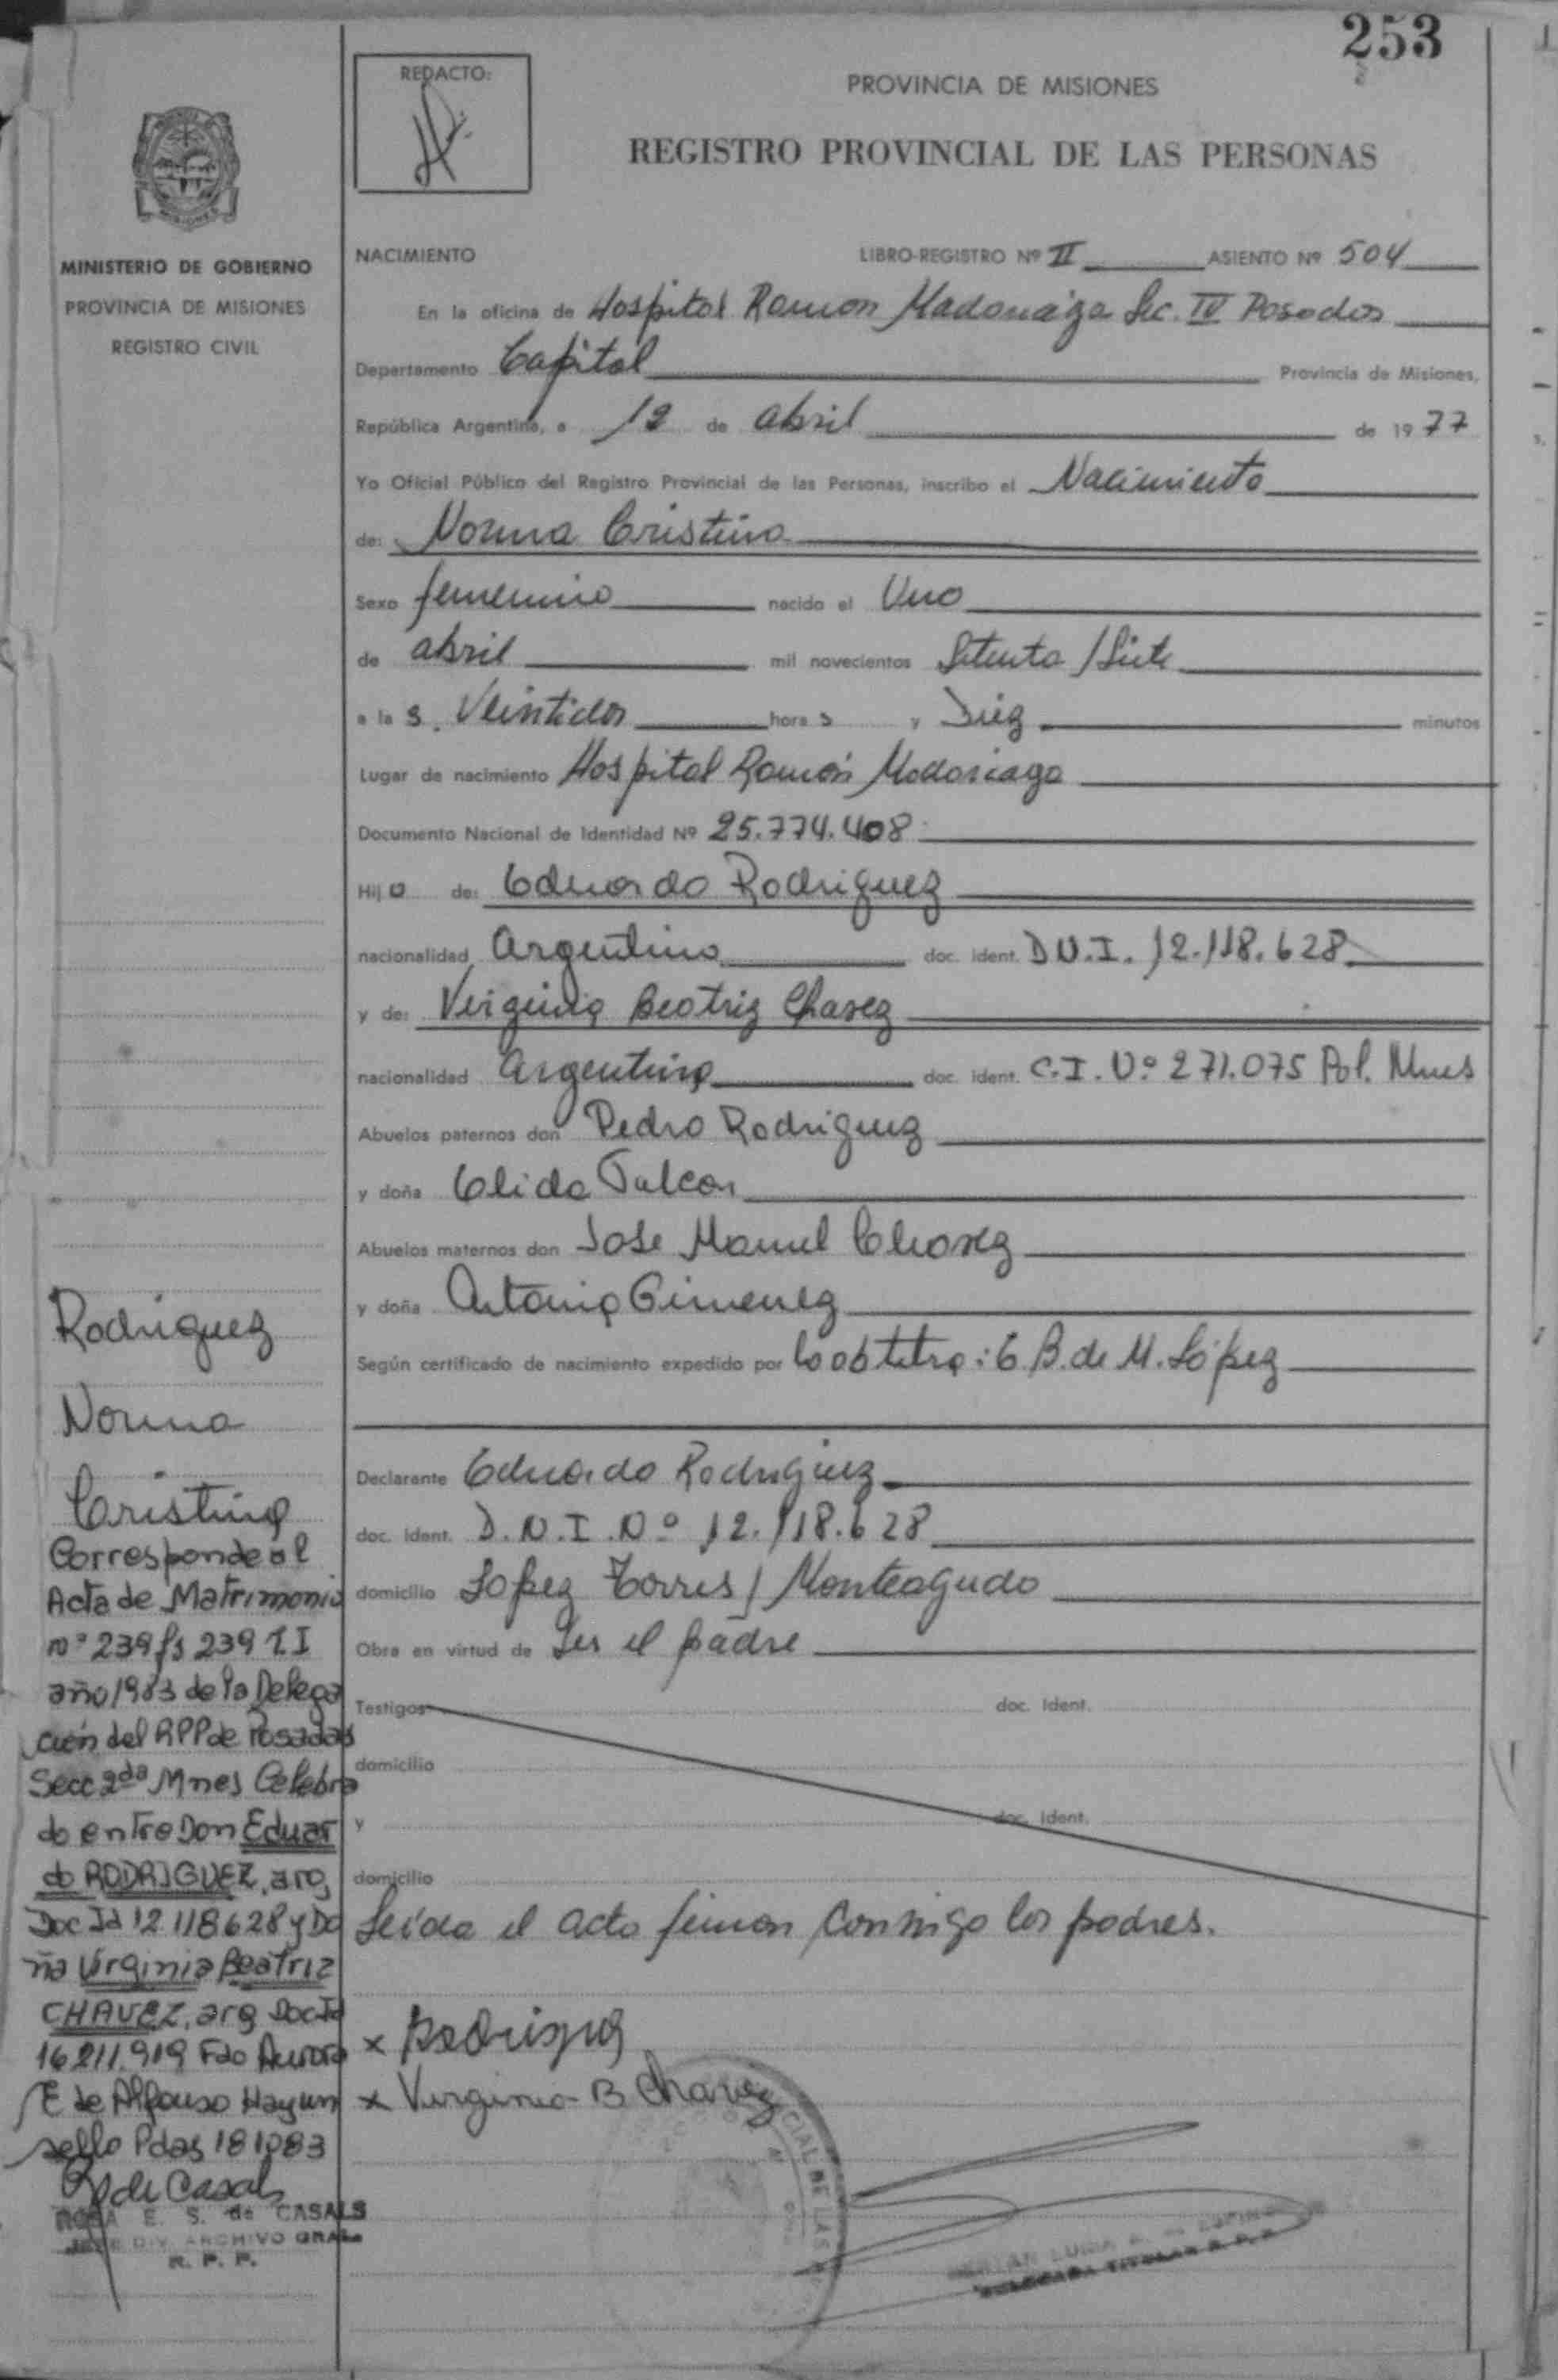 253
REDACTO:
PROVINCIA DE MISIONES
REGISTRO PROVINCIAL DE LAS PERSONAS
MINISTERIO DE GOBIERNO
PROVINCIA DE MISIONES
REGISTRO CIVIL
NACIMIENTO LIBRO-REGISTRO Nº II ASIENTO Nº 504
En la oficina de Hospital Ramón Madariaga Sec. IV Posadas
Departamento Capital Provincia de Misiones,
República Argentina, a 12 de abril de 1977
Yo Oficial Público del Registro Provincial de las Personas, inscribo el Nacimiento
de: Norma Cristina
Sexo femenino nacida el Uno
de abril mil novecientos Setenta / Siete
a la s. Veintidos hora s y Diez minutos
Lugar de nacimiento Hospital Ramón Madariaga
Documento Nacional de Identidad Nº 25.774.408
Hij a de: Eduardo Rodriguez
nacionalidad argentino doc. ident. D.N.I. 12.118.628
y de: Virginia Beatriz Chavez
nacionalidad argentina doc. ident. C.I. Nº 271.075 Pol. Mnes
Abuelos paternos don Pedro Rodriguez
y doña Elida
Abuelos maternos don Jose Manuel Chavez
y doña Antonia Gimenez
Según certificado de nacimiento expedido por la obtetra: E. B. de M. López
Declarante Eduardo Rodriguez
doc. ident. D.N.I. Nº 12.118.628
domicilio Lopez Torres / Monteagudo
Obra en virtud de ser el padre
Testigos doc. ident.
domicilio
y doc. ident.
domicilio
Leida el acta firman conmigo los padres.
x Rodriguez
x Virginia B Chavez
Rodriguez
Norma
Cristina
Corresponde al
Acta de Matrimonio
nº 239 fs 239 T. I
año 1983 de la Delega
ción del RPP de Posadas
Secc 2da Mnes Celebra
do entre Don Eduar
do RODRIGUEZ, arg,
Doc Id 12 118628 y Do
ña Virginia Beatriz
CHAVEZ, arg Doc Id
16 211.919 Fdo Aurora
E de Alfonso Hay un
sello Pdas 181083
R de Casals
ROSA E. S. de CASALS
JEFE DIV. ARCHIVO GRAL.
R. P. P.